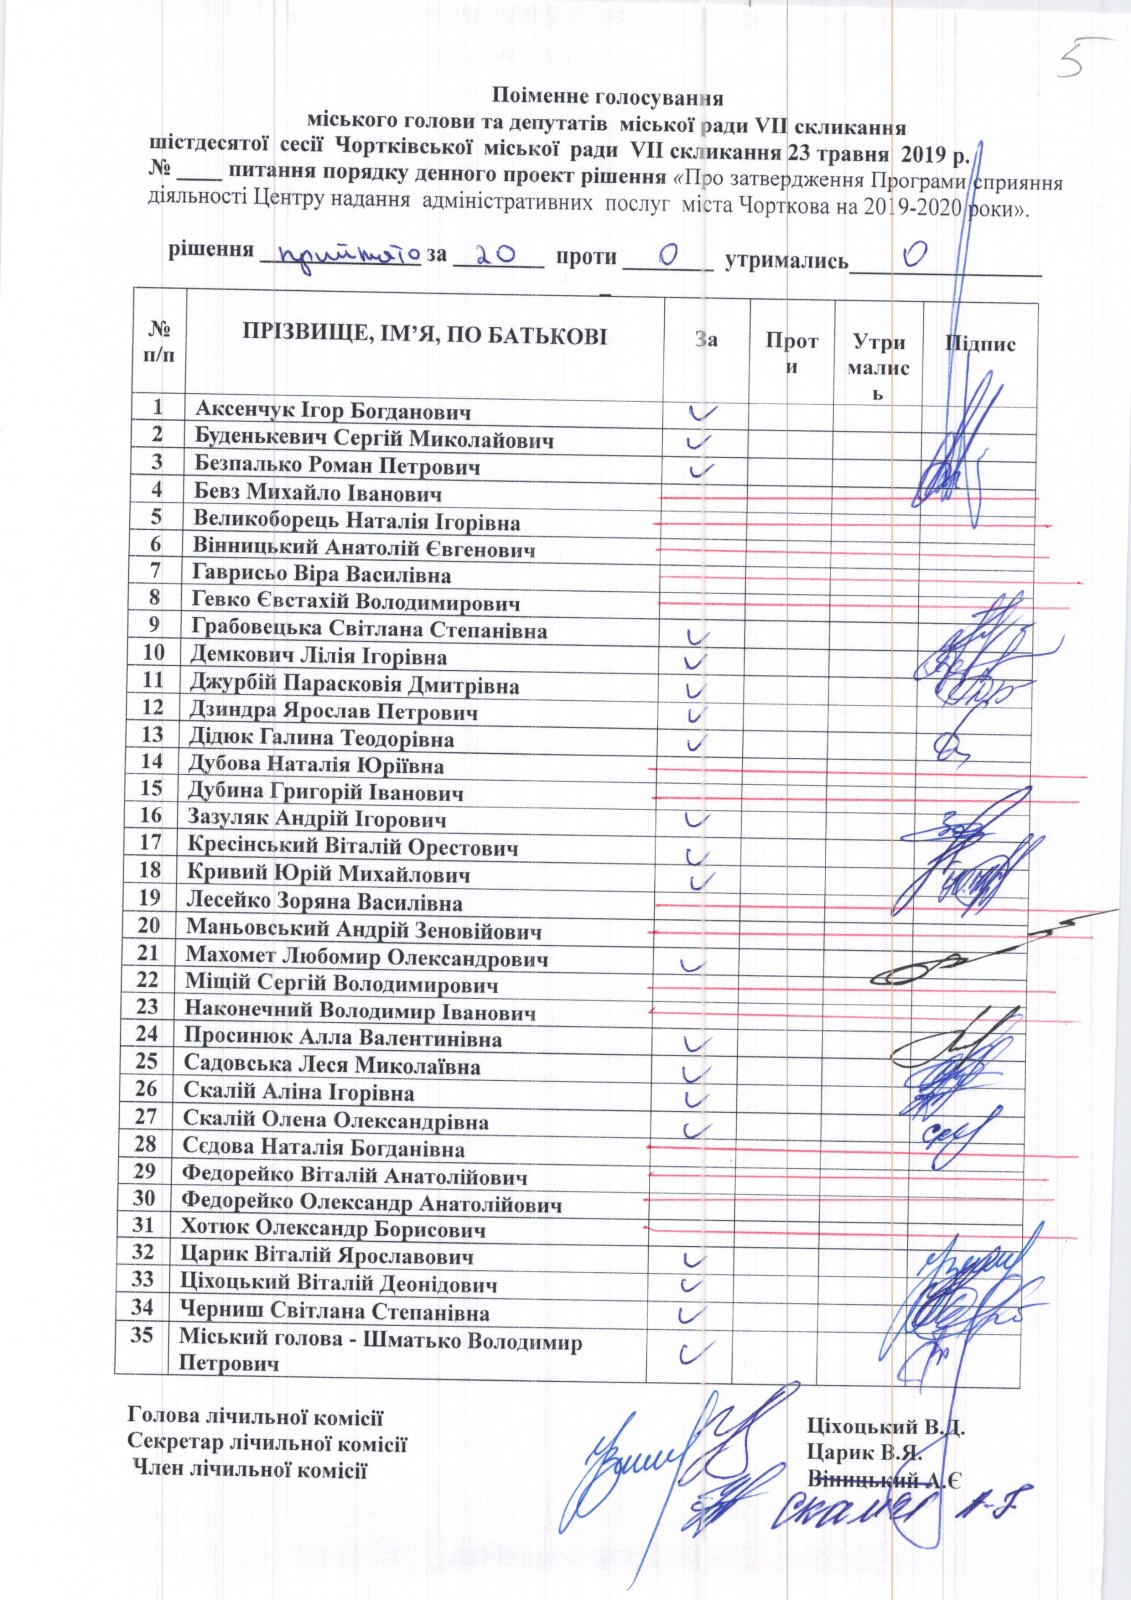 5
Поіменне голосування
міського голови та депутатів міської ради VII скликання
шістдесятої сесії Чортківської міської ради VII скликання 23 травня 2019 р.
№ ____ питання порядку денного проект рішення «Про затвердження Програми сприяння
діяльності Центру надання адміністративних послуг міста Чорткова на 2019-2020 роки».
рішення прийнято за 20 проти 0 утримались 0
№ п/п ПРІЗВИЩЕ, ІМ’Я, ПО БАТЬКОВІ За Проти Утрималис ь Підпис
1 Аксенчук Ігор Богданович ✓
2 Буденькевич Сергій Миколайович ✓
3 Безпалько Роман Петрович ✓
4 Бевз Михайло Іванович
5 Великоборець Наталія Ігорівна
6 Вінницький Анатолій Євгенович
7 Гаврисьо Віра Василівна
8 Гевко Євстахій Володимирович
9 Грабовецька Світлана Степанівна ✓
10 Демкович Лілія Ігорівна ✓
11 Джурбій Парасковія Дмитрівна ✓
12 Дзиндра Ярослав Петрович ✓
13 Дідюк Галина Теодорівна ✓
14 Дубова Наталія Юріївна
15 Дубина Григорій Іванович
16 Зазуляк Андрій Ігорович ✓
17 Кресінський Віталій Орестович ✓
18 Кривий Юрій Михайлович ✓
19 Лесейко Зоряна Василівна
20 Маньовський Андрій Зеновійович
21 Махомет Любомир Олександрович ✓
22 Міщій Сергій Володимирович
23 Наконечний Володимир Іванович
24 Просинюк Алла Валентинівна ✓
25 Садовська Леся Миколаївна ✓
26 Скалій Аліна Ігорівна ✓
27 Скалій Олена Олександрівна ✓
28 Сєдова Наталія Богданівна
29 Федорейко Віталій Анатолійович
30 Федорейко Олександр Анатолійович
31 Хотюк Олександр Борисович
32 Царик Віталій Ярославович ✓
33 Ціхоцький Віталій Деонідович ✓
34 Черниш Світлана Степанівна ✓
35 Міський голова - Шматько Володимир ✓
Петрович
Голова лічильної комісії Ціхоцький В.Д.
Секретар лічильної комісії Царик В.Я.
Член лічильної комісії Віницький А.Є